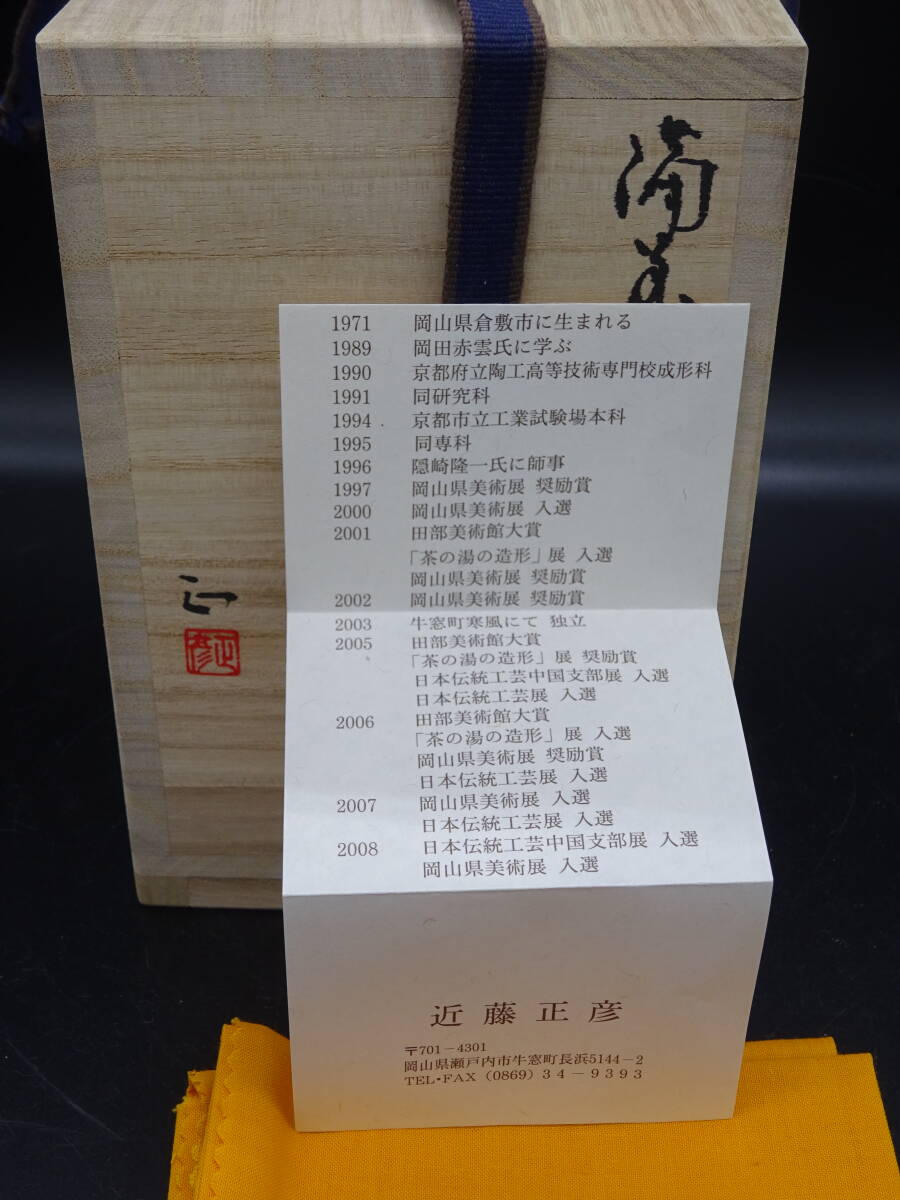 備前
正
正彦
1971 岡山県倉敷市に生まれる
1989 岡田赤雲氏に学ぶ
1990 京都府立陶工高等技術専門校成形科
1991 同研究科
1994 京都市立工業試験場本科
1995 同専科
1996 隠崎隆一氏に師事
1997 岡山県美術展 奨励賞
2000 岡山県美術展 入選
2001 田部美術館大賞
「茶の湯の造形」展 入選
岡山県美術展 奨励賞
2002 岡山県美術展 奨励賞
2003 牛窓町寒風にて 独立
2005 田部美術館大賞
「茶の湯の造形」展 奨励賞
日本伝統工芸中国支部展 入選
日本伝統工芸展 入選
2006 田部美術館大賞
「茶の湯の造形」展 入選
岡山県美術展 奨励賞
日本伝統工芸展 入選
2007 岡山県美術展 入選
日本伝統工芸展 入選
2008 日本伝統工芸中国支部展 入選
岡山県美術展 入選
近藤正彦
〒701-4301
岡山県瀬戸内市牛窓町長浜5144-2
TEL・FAX (0869) 34-9393